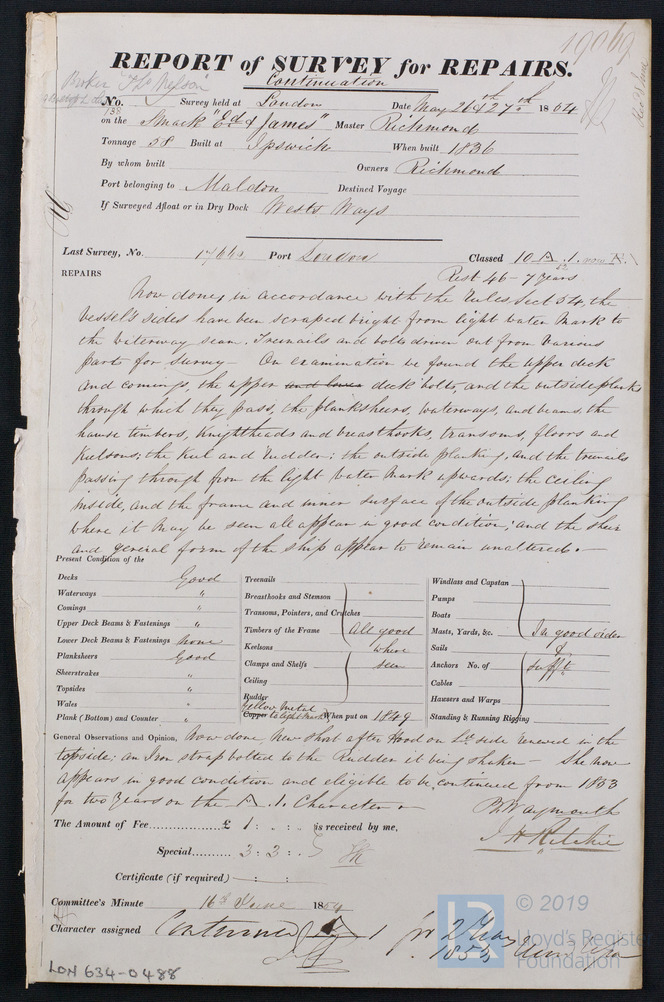 19069
REPORT of SURVEY for REPAIRS.
Continuation
No. 138 Survey held at London Date May 26th & 27th 1854
on the Smack "Ed & James" Master Richmond
Tonnage 58 Built at Ipswich When built 1836
By whom built Owners Richmond
Port belonging to Maldon Destined Voyage
If Surveyed Afloat or in Dry Dock Wests Ways
Last Survey, No. Port London Classed 10 A.1. now
Rest 46 - 7 years
REPAIRS
Now done, in accordance with the Rules Sect 54, the
Vessel's sides have been scraped bright from light water mark to
the waterway seam. Treenails and bolts driven out from various
parts for survey - On examination we found the upper deck
and comings, the upper and lower deck bolts, and the outside planks
through which they pass, the planksheers, waterways, and beams, the
hawse timbers, Knightheads and breasthooks, transoms, floors and
Keelsons; the Keel and Rudder: the outside planking, and the treenails
passing through from the light water mark upwards; the ceiling
inside, and the frame and inner surface of the outside planking
where it may be seen all appear in good condition; and the sheer
and general form of the ship appear to remain unaltered.-
Present Condition of the
Decks Good
Waterways "
Comings "
Upper Deck Beams & Fastenings "
Lower Deck Beams & Fastenings None
Planksheers Good
Sheerstrakes "
Topsides "
Wales "
Plank (Bottom) and Counter "
Treenails
Breasthooks and Stemson
Transoms, Pointers, and Crutches
Timbers of the Frame All good
Keelsons where
Clamps and Shelfs seen
Ceiling
Rudder
Yellow Metal
Copper to light mark When put on 1849
Windlass and Capstan
Pumps
Boats
Masts, Yards, &c. In good order
Sails &
Anchors No. of sufft
Cables
Hawsers and Warps
Standing & Running Rigging
General Observations and Opinion, Now done, New short after Hood on Ld side renewed in the
topside; an Iron strap bolted to the Rudder it being shaken - She now
appears in good condition and eligible to be continued from 1853
for two Years on the A.1. Character
B Waymouth
J H Ritchie
The Amount of Fee £ 1 : . : . is received by me,
Special 3 : 3 : .
Certificate (if required)
Committee's Minute 16th June 1854
Character assigned Continued A 1 for 2 Years
1853
LON 634-0488
© 2019
Lloyd's Register
Foundation